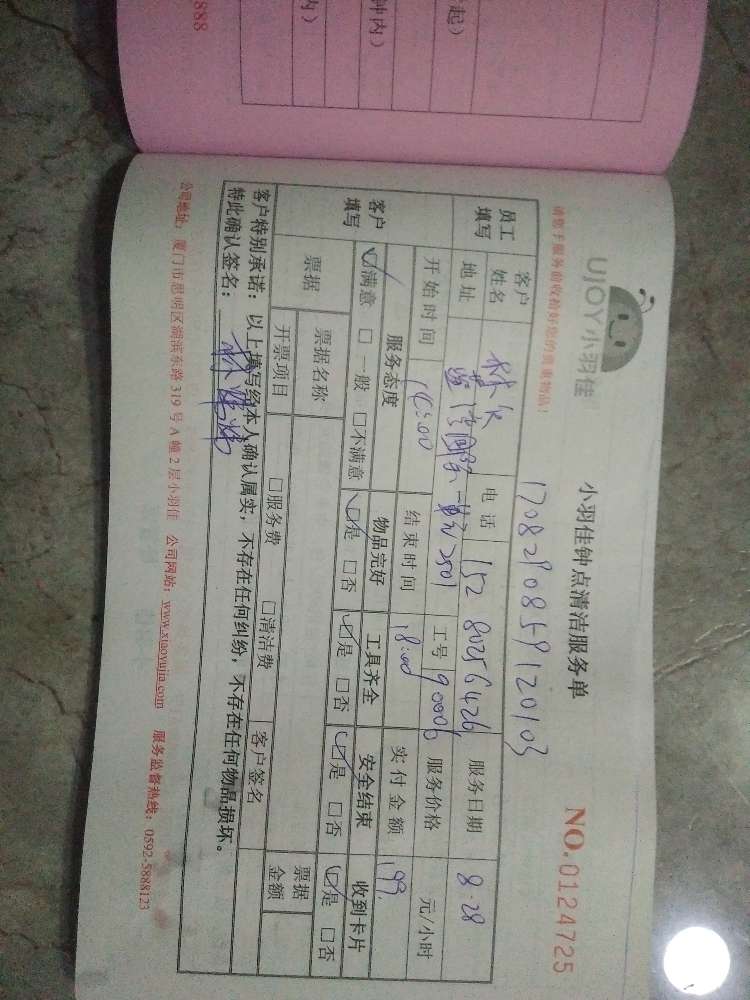 888
内）
钟内）
起）
UJOY小羽佳
小羽佳钟点清洁服务单
NO.0124725
请您于服务前收拾好您的贵重物品！
1708290859120103
员工填写
客户姓名
电话
152 8025 6426
服务日期
8.28
地址
国际一
2501
工号
90006
服务价格
元/小时
开始时间
14:00
结束时间
18:00
实付金额
199.
客户填写
服务态度
物品完好
工具齐全
安全结束
收到卡片
☑满意 □一般 □不满意
☑是 □否
☑是 □否
☑是 □否
☑是 □否
票据
票据名称
票据金额
开票项目
□服务费 □清洁费
客户签名
客户特别承诺：以上填写经本人确认属实，不存在任何纠纷，不存在任何物品损坏。
特此确认签名：
公司地址：厦门市思明区湖滨东路319号A幢2层小羽佳 公司网站：www.xiaoyujia.com 服务监督热线：0592-5888123